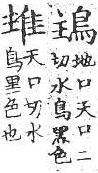 鴭
地口天口二
切水鳥黑色
天口切水
鳥里色也